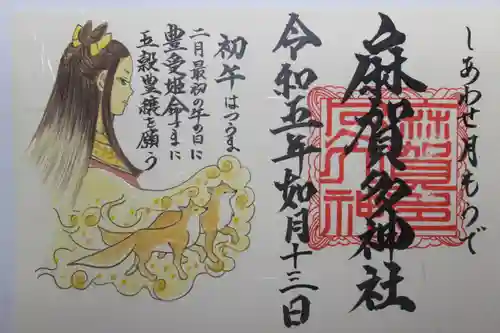 しあわせ月もうで
麻賀多神社
令和五年如月十三日
初午はつうま
二月最初の午の日に
豊受姫命さまに
五穀豊穣を願う